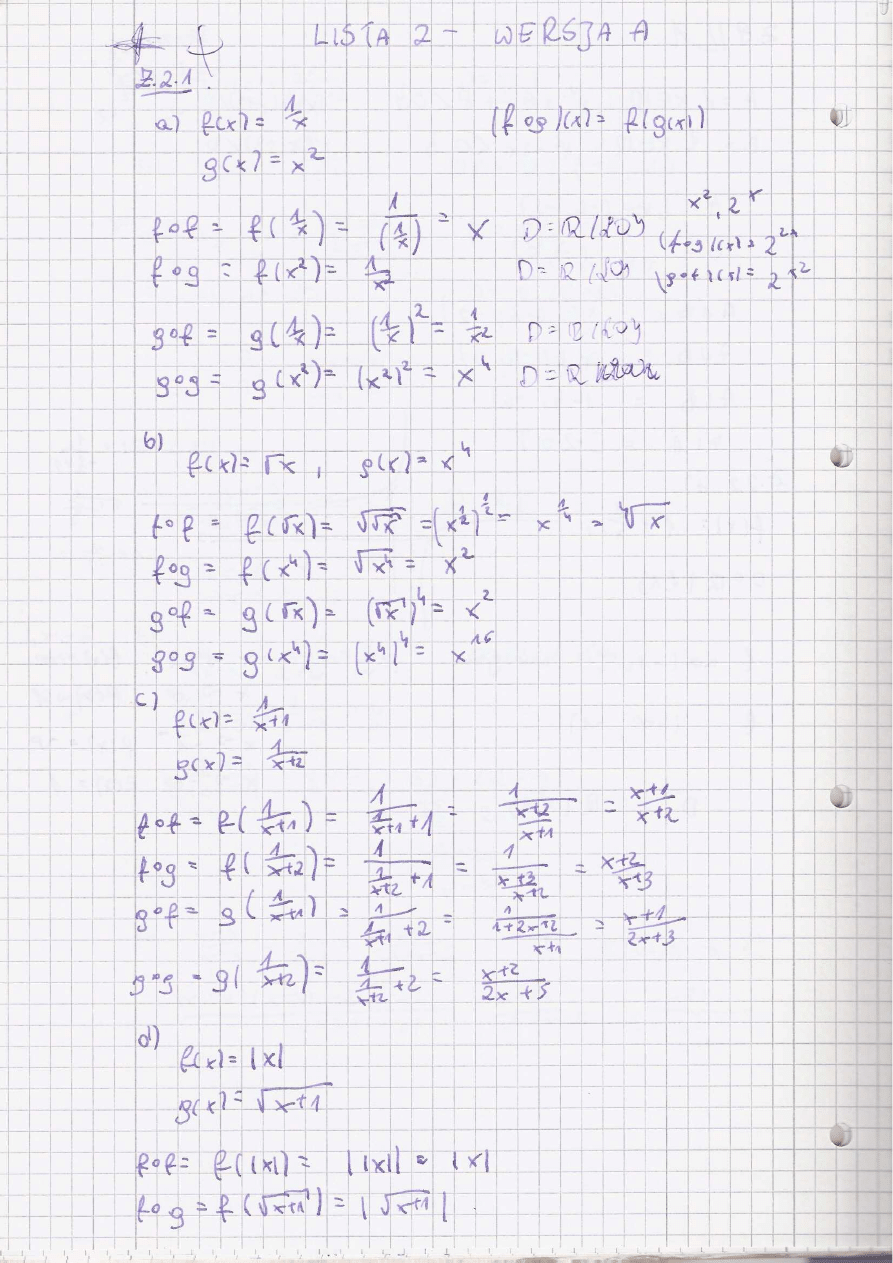 LISTA 2 - WERSJA A
Z.2.1
a) f(x) = 1/x (f∘g)(x) = f(g(x))
g(x) = x²
x², 2ˣ
f∘f = f(1/x) = 1/(1/x) = x D = R/{0}
(f∘g)(x) = 2²ˣ
f∘g = f(x²) = 1/x² D = R/{0}
(g∘f)(x) = 2^x²
g∘f = g(1/x) = (1/x)² = 1/x² D = R/{0}
g∘g = g(x²) = (x²)² = x⁴ D = R
b)
f(x) = √x , g(x) = x⁴
f∘f = f(√x) = √√x = (x^½)^½ = x^¼ = ⁴√x
f∘g = f(x⁴) = √x⁴ = x²
g∘f = g(√x) = (√x)⁴ = x²
g∘g = g(x⁴) = (x⁴)⁴ = x¹⁶
c)
f(x) = 1/(x+1)
g(x) = 1/(x+2)
f∘f = f(1/(x+1)) = 1/(1/(x+1) + 1) = 1/((x+2)/(x+1)) = (x+1)/(x+2)
f∘g = f(1/(x+2)) = 1/(1/(x+2) + 1) = 1/((x+3)/(x+2)) = (x+2)/(x+3)
g∘f = g(1/(x+1)) = 1/(1/(x+1) + 2) = 1/((1+2x+2)/(x+1)) = (x+1)/(2x+3)
g∘g = g(1/(x+2)) = 1/(1/(x+2) + 2) = (x+2)/(2x+5)
d)
f(x) = |x|
g(x) = √(x+1)
f∘f = f(|x|) = ||x|| = |x|
f∘g = f(√(x+1)) = |√(x+1)|